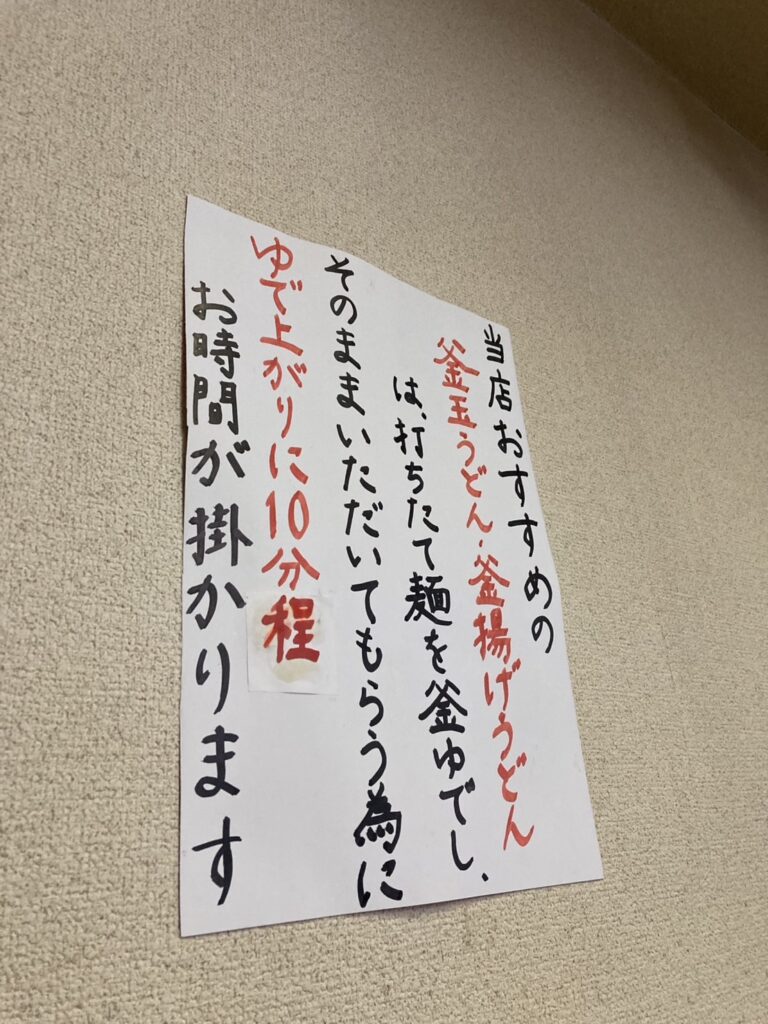 当店おすすめの
釜玉うどん・釜揚げうどん
は、打ちたて麺を釜ゆでし、
そのままいただいてもらう為に
ゆで上がりに10分程
お時間が掛かります